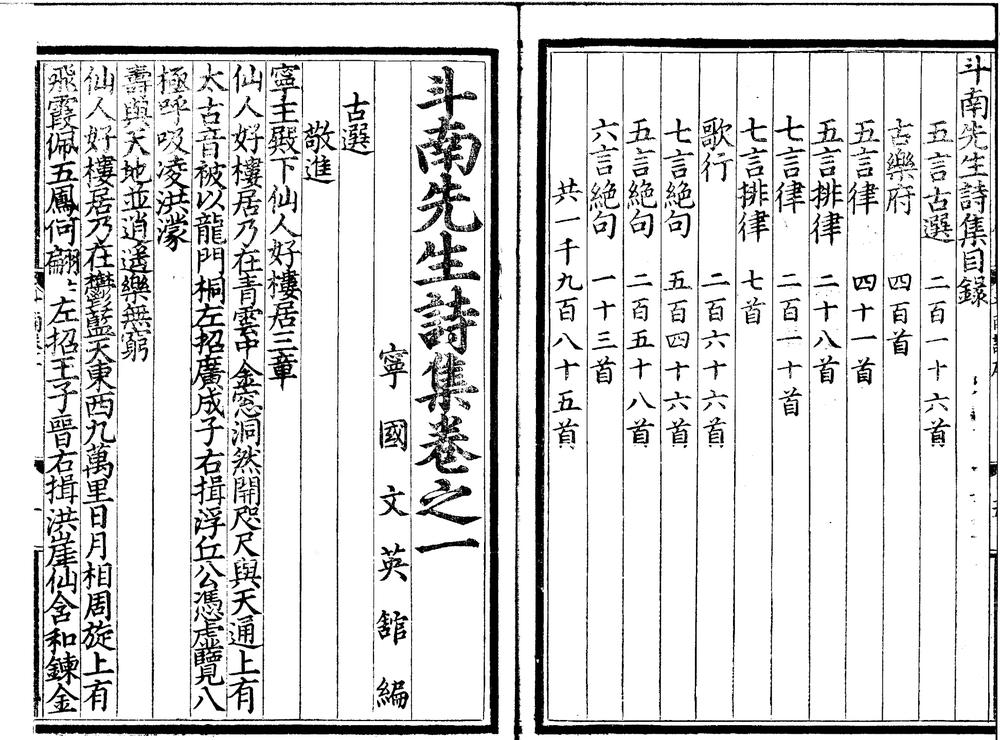 斗南先生詩集目錄
五言古選 二百一十六首
古樂府 四百首
五言律 四十一首
五言排律 二十八首
七言律 二百一十首
七言排律 七首
歌行 二百六十六首
七言絕句 五百四十六首
五言絕句 二百五十八首
六言絕句 一十三首
共一千九百八十五首
斗南先生詩集卷之一
寧國文英舘編
古選
敬進
寧王殿下仙人好樓居三章
仙人好樓居乃在青雲中金窓洞然開咫尺與天通上有
太古音被以龍門桐左招廣成子右揖浮丘公憑虛覽八
極呼吸凌洪濛
壽與天地並逍遙樂無窮
仙人好樓居乃在欝藍天東西九萬里日月相周旋上有
飛霞佩五鳳何翩〻左招王子晉右揖洪崖仙含和鍊金